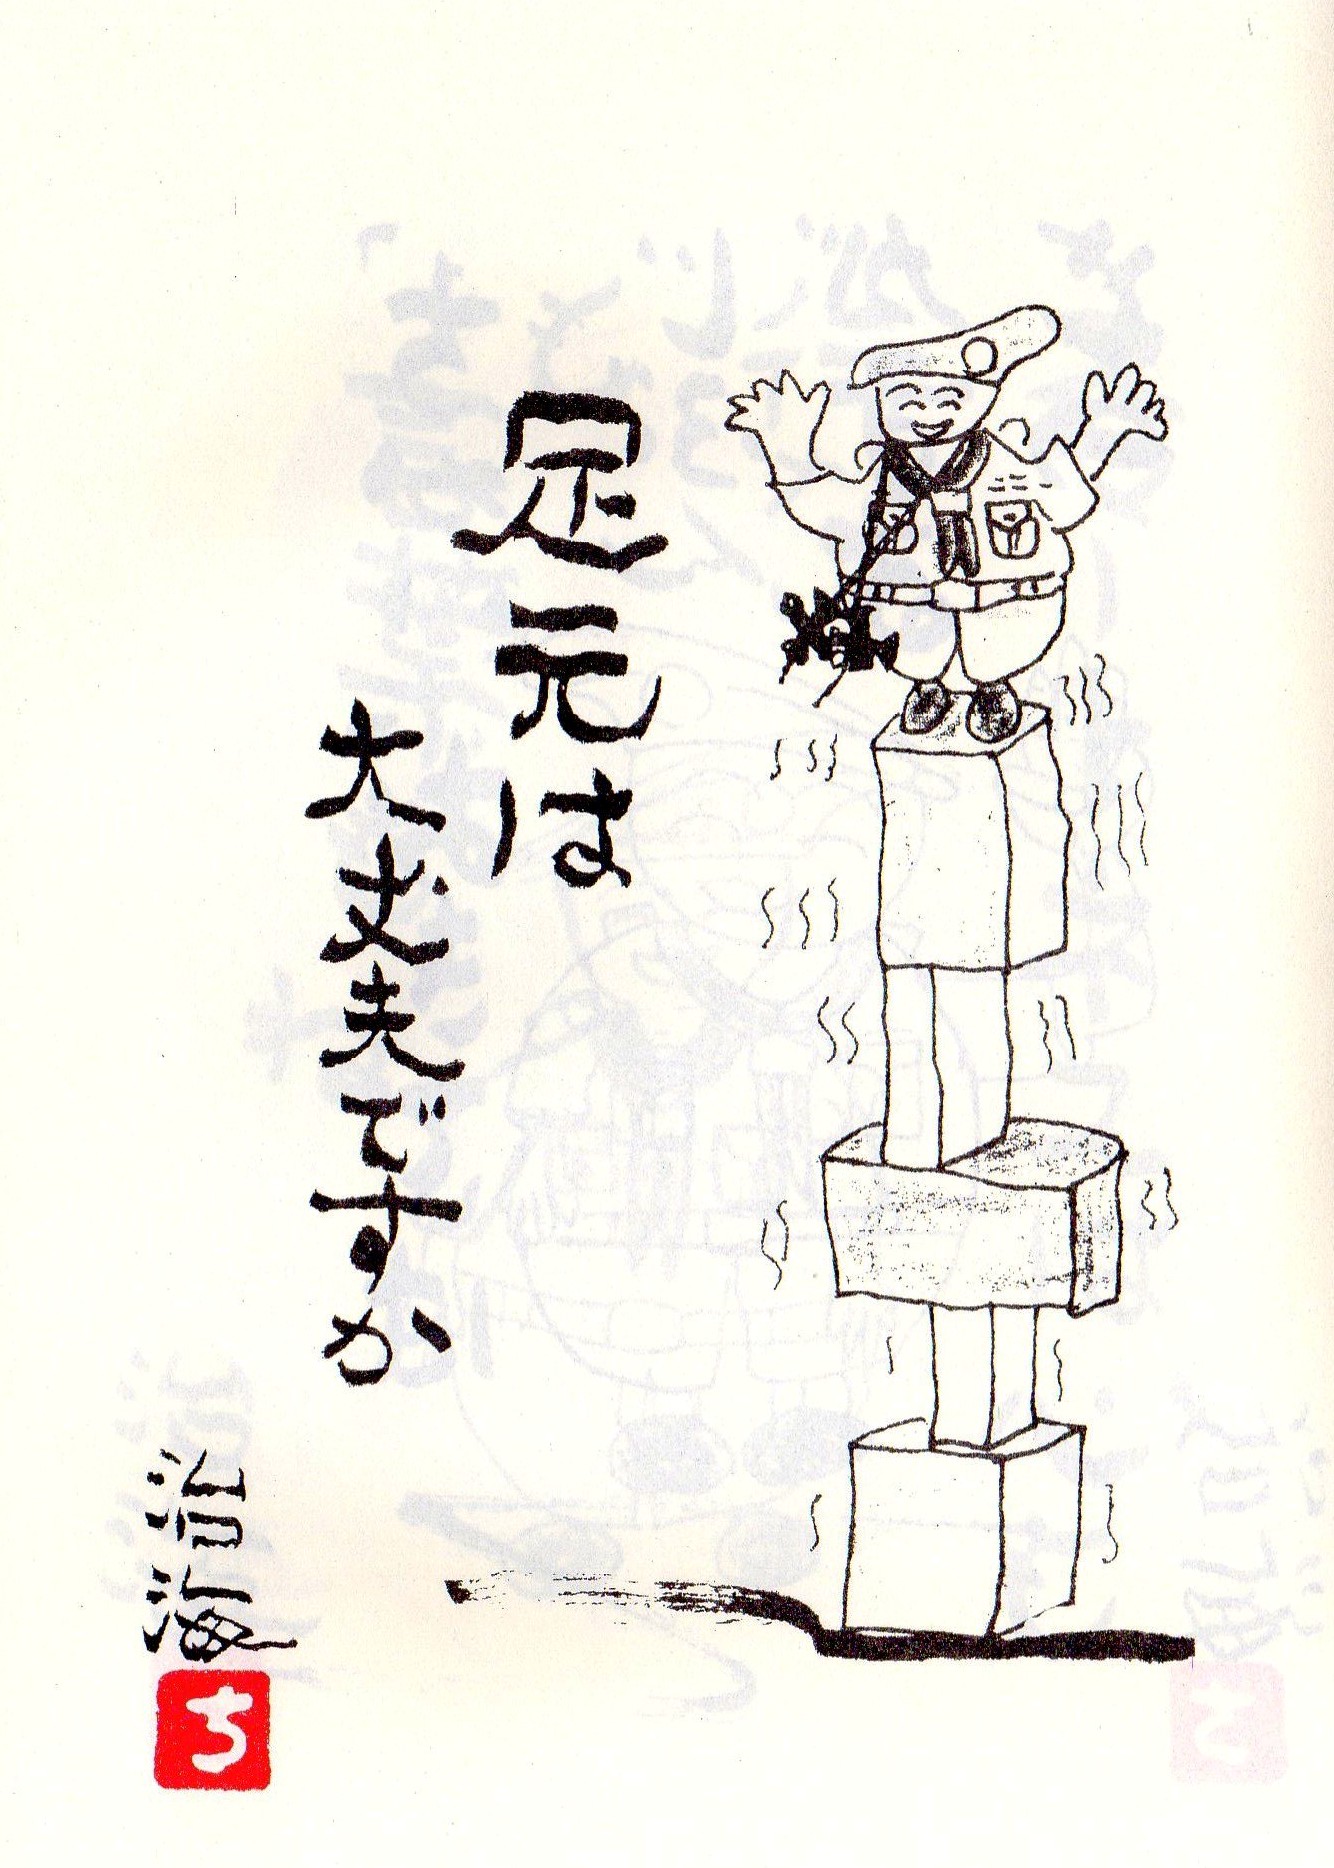 足元は
大丈夫ですか
治海
ち